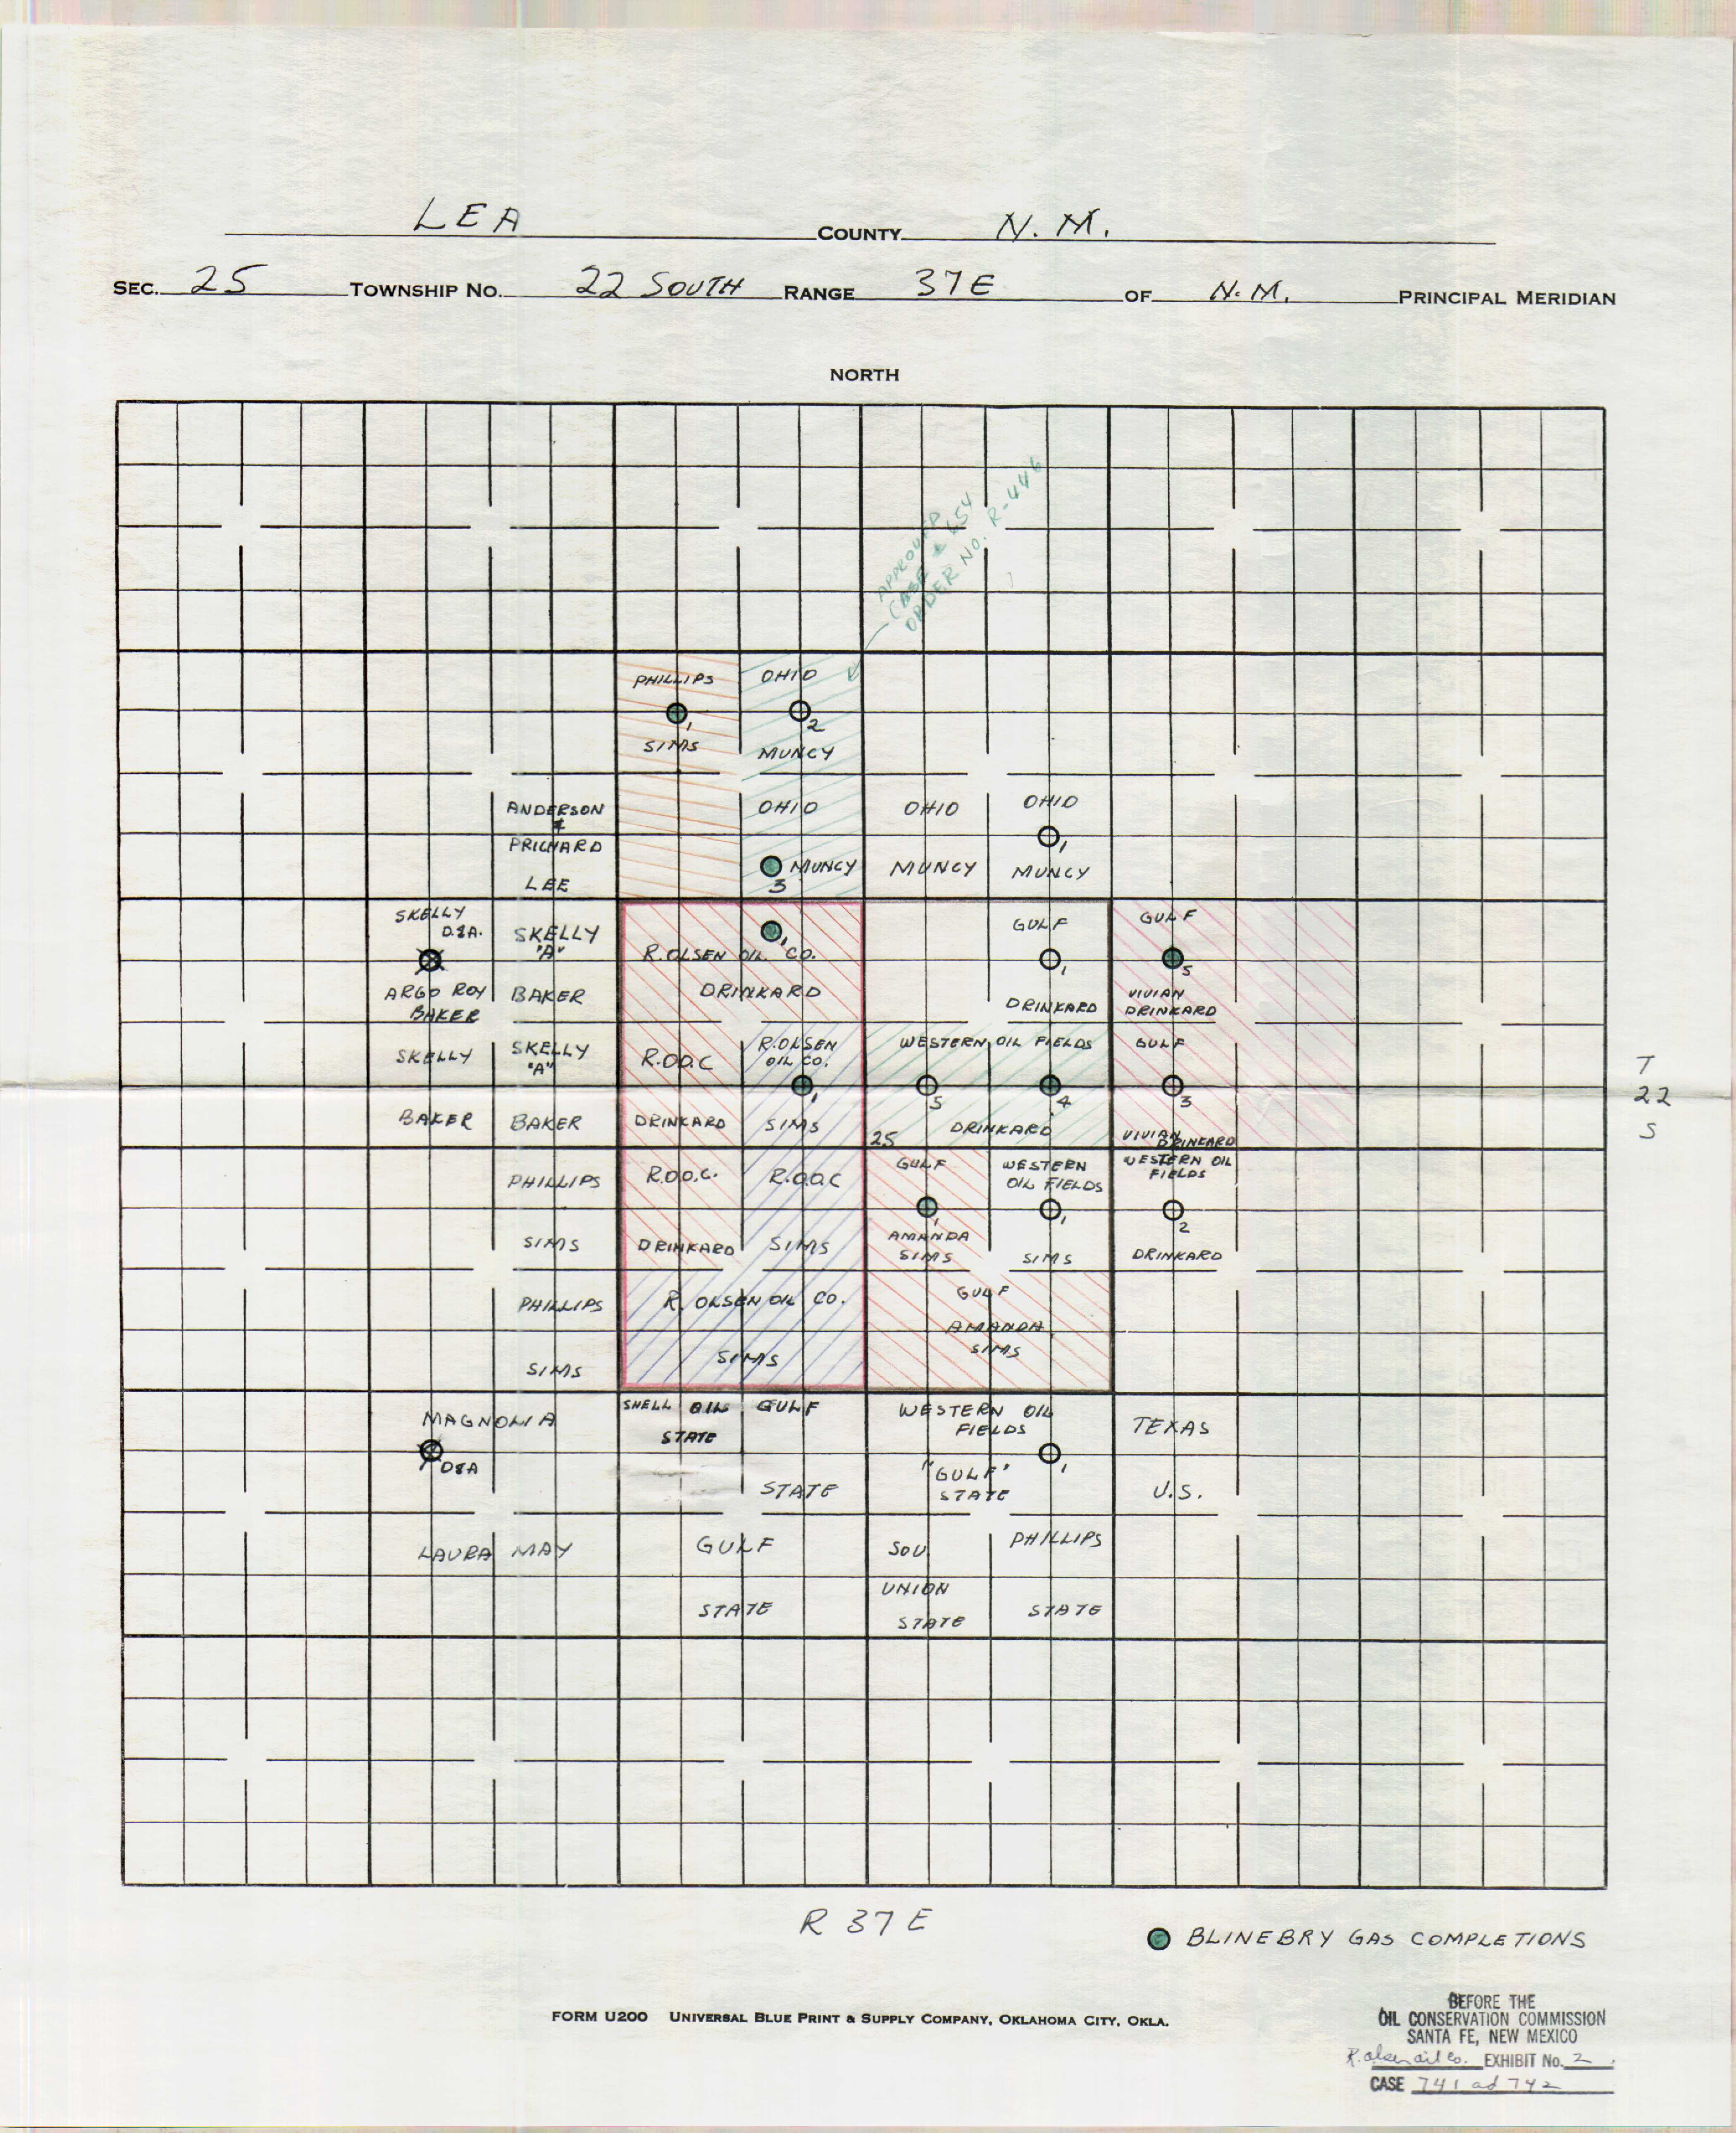 LEA COUNTY N. M.
SEC. 25 TOWNSHIP NO. 22 SOUTH RANGE 37E OF N. M. PRINCIPAL MERIDIAN
NORTH
APPROVED
CASE 654
ORDER NO. R-446
PHILLIPS
1
SIMS
OHIO
2
MUNCY
ANDERSON
&
PRICHARD
LEE
OHIO
MUNCY
3
OHIO
MUNCY
OHIO
1
MUNCY
SKELLY
D&A.
ARGO ROY
BAKER
SKELLY
"A"
BAKER
1
R. OLSEN OIL CO.
DRINKARD
GULF
1
DRINKARD
GULF
5
VIVIAN
DRINKARD
SKELLY
BAKER
SKELLY
"A"
BAKER
R.O.O.C
DRINKARD
R. OLSEN
OIL CO.
1
SIMS
WESTERN OIL FIELDS
5 4
DRINKARD
25
GULF
3
VIVIAN
DRINKARD
PHILLIPS
SIMS
R.O.O.C.
DRINKARD
R.O.O.C
SIMS
GULF
1
AMANDA
SIMS
WESTERN
OIL FIELDS
1
SIMS
WESTERN OIL
FIELDS
2
DRINKARD
PHILLIPS
SIMS
R. OLSEN OIL CO.
SIMS
GULF
AMANDA
SIMS
MAGNOLIA
D&A
LAURA MAY
SHELL OIL
STATE
GULF
STATE
WESTERN OIL
FIELDS
1
"GULF"
STATE
TEXAS
U.S.
GULF
STATE
SOU
UNION
STATE
PHILLIPS
STATE
T
22
S
R 37 E
BLINEBRY GAS COMPLETIONS
FORM U200 UNIVERSAL BLUE PRINT & SUPPLY COMPANY, OKLAHOMA CITY, OKLA.
BEFORE THE
OIL CONSERVATION COMMISSION
SANTA FE, NEW MEXICO
R. Olsen Oil Co. EXHIBIT No. 2
CASE 741 ad 742